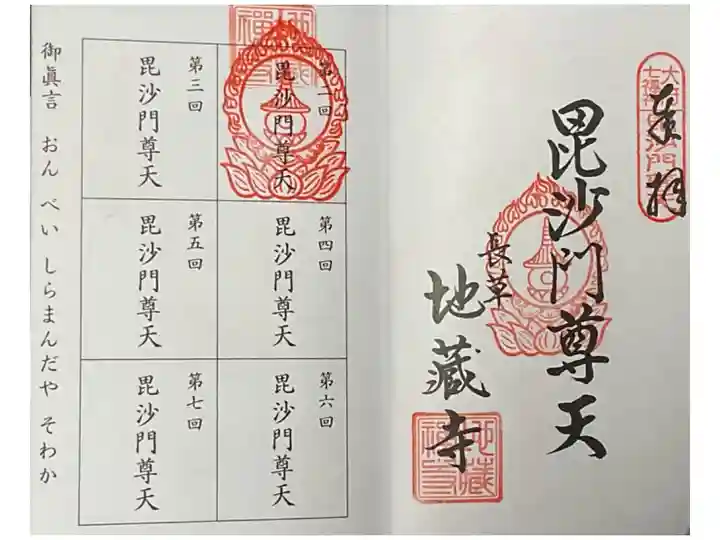 奉拝
毘沙門尊天
長草
地藏寺
地藏
禪寺
第二回
毘沙門尊天
第三回
毘沙門尊天
第四回
毘沙門尊天
第五回
毘沙門尊天
第六回
毘沙門尊天
第七回
毘沙門尊天
御眞言 おん べい しらまんだや そわか